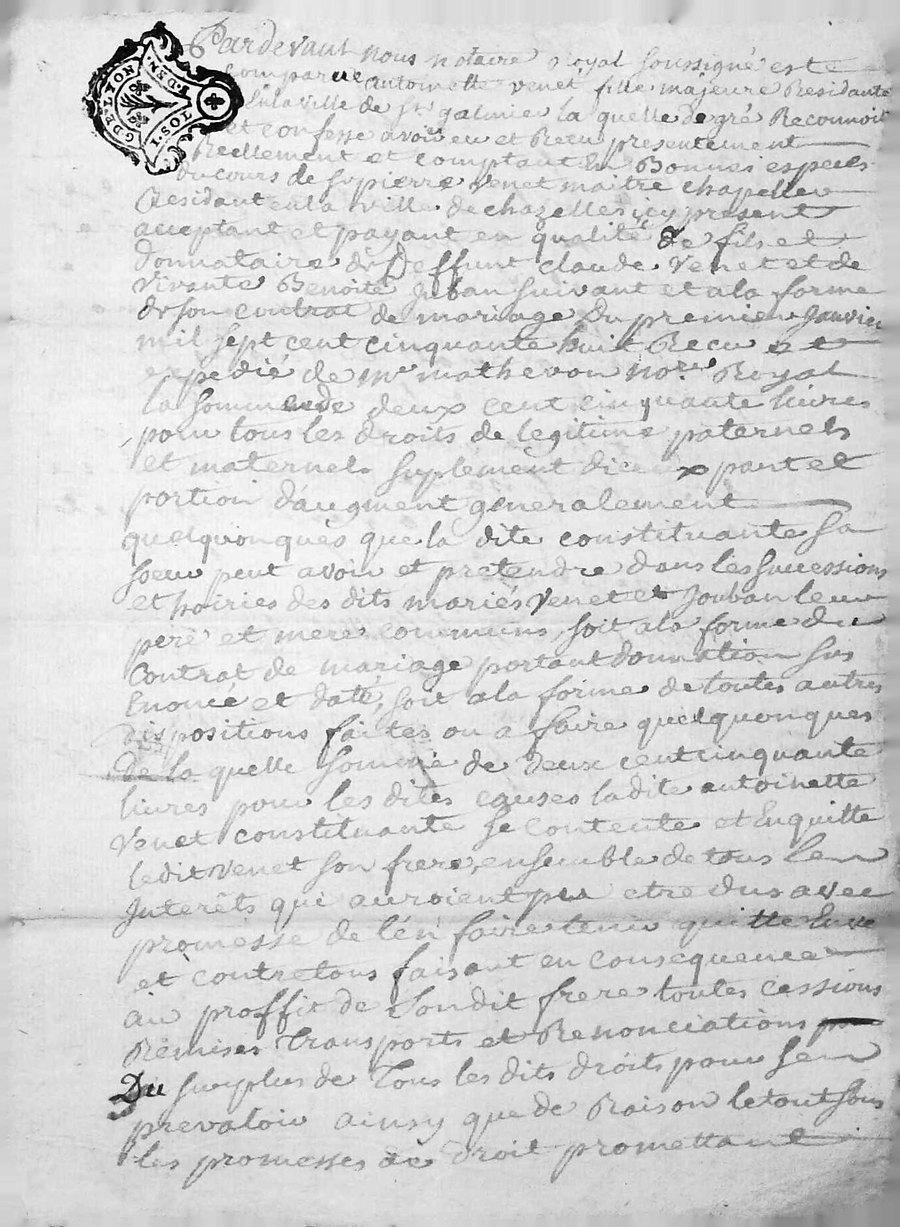 G. DE LYON
I. SOL
DEN.
Pardevant nous notaire Royal soussigné este
Comparue antoinette venet fille majeure Residante
En la ville de st galmie la quelle de gré Reconnoit
et confesse avoir eu et Recu presentement
Reellement et comptant En Bonnes especes
Du cours de sr pierre venet maitre chapellier
Residant en la ville de chazelles icy present
acceptant et payant en qualité de fils et
donnataire de Deffunt claude Venet et de
vivante Benoite Juban suivant et a la forme
de son contrat de mariage Du premier Janvier
mil sept cent cinquante huit Recu et
expedié de me mathevon nore Royal
la somme de deux cent cinquante livres
pour tous les droits de legitime paternels
et maternels suplément dicex part et
portion d'augment generalement
quelquonques que la dite constituante sa
soeur peut avoir et pretendre dans les successions
et hoiries des dits mariés Venet et Jouban leur
peré et mere communs, soit a la forme du
Contrat de mariage portant donnation sus
Enoncé et daté, soit a la forme de toutes autres
dispositions faites ou a faire quelquonques
De la quelle somme de deux cent cinquante
livres pour les dites causes ladite antoinette
Venet constituante se contente et Enquitte
ledit Venet son frere, ensemble de tous les
Interêts qui auroient pu etre dus avec
promesse de l'en faire tenir quitte Enve
et contre tous faisant en consequence
au proffit de sondit frere toutes cessions
Remises Transports et Renonciations
Du surplus de Tous les dits droits pour sen
prevaloir ainsy que de Raison le tout sous
les promesses de droit promettant